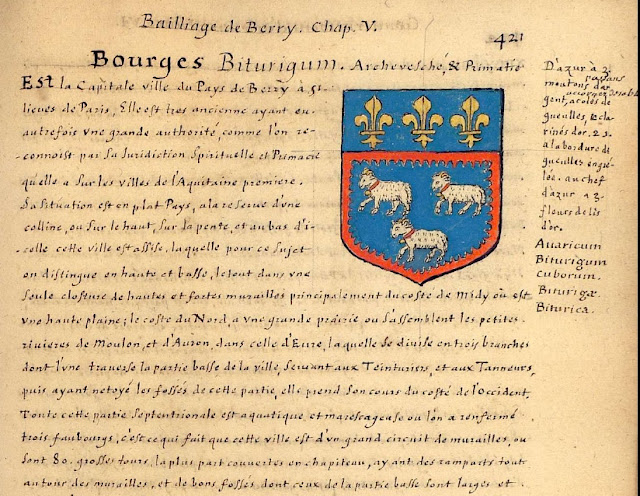 Bailliage de Berry. Chap. V.
421
Bourges Biturigum. Archevesché, & Primatie
Est la Capitale ville du Pays de Berry à 51
lieues de Paris, Elle est tres ancienne ayant eu
autrefois une grande authorité, comme l'on re-
connoist par sa Juridistion Spirituelle et Primacie
qu'elle a sur les villes de l'Aquitaine premiere.
Sa situation est en plat Pays, a la reserve d'une
colline, ou sur le haut, sur sa pente, et au bas d'i-
celle cette ville est assise, laquelle pour ce sujet
on distingue en haute et basse, le tout dans une
seule closture de hautes et fortes murailles principalement du costé de Midy où est
une haute plaine; le costé du Nord, a une grande prairie ou s'assemblent les petites
rivieres de Moulon, et d'Auron, dans celle d'Eure, laquelle se divise en trois branches
dont l'une traverse la partie basse de la ville, servant aux Teinturiers, et aux Tanneurs,
puis ayant netoyé les fossés de cette partie, elle prend son cours du costé de l'Occident.
Toute cette partie Septentrionale est aquatique, et marescageuse ou l'on a renfermé
trois faubourgs, c'est ce qui fait que cette ville est d'un grand circuit de murailles, ou
sont 80. grosses tours, la plus part couvertes en chapiteau, ayant des ramparts tout
autour des murailles, et de bons fossés dont ceux de la partie basse sont larges et
D'azur à 3.
moutons passans d'ar-
gent, acolés de
gueulles, & cla-
rinés d'or. 2.1.
a la bordure de
gueulles engré-
lée. au chef
d'azur a 3.
fleurs de lis
d'or.
Avaricum
Biturigum
Cuborum.
Biturigæ
Biturica.